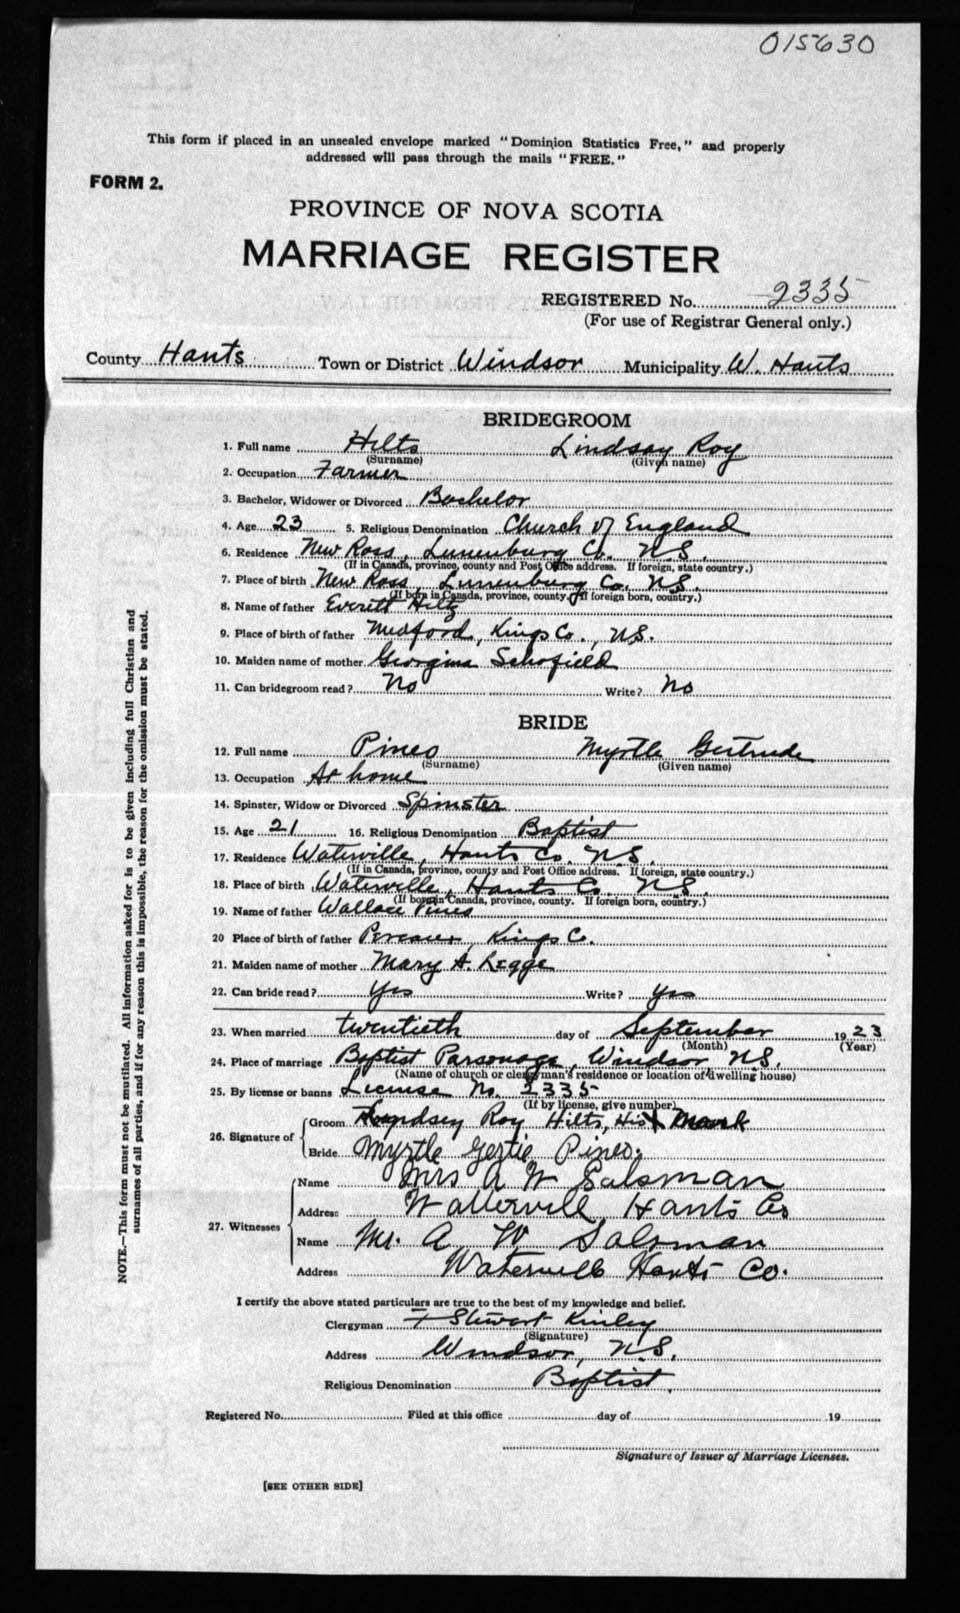 015630
This form if placed in an unsealed envelope marked "Dominion Statistics Free," and properly
addressed will pass through the mails "FREE."
FORM 2.
PROVINCE OF NOVA SCOTIA
MARRIAGE REGISTER
REGISTERED No. 2335
(For use of Registrar General only.)
County Hants Town or District Windsor Municipality W. Hants
BRIDEGROOM
1. Full name Hilts Lindsay Roy
(Surname) (Given name)
2. Occupation Farmer
3. Bachelor, Widower or Divorced Bachelor
4. Age 23 5. Religious Denomination Church of England
6. Residence New Ross, Lunenburg Co. N.S.
(If in Canada, province, county and Post Office address. If foreign, state country.)
7. Place of birth New Ross, Lunenburg Co. N.S.
(If born in Canada, province, county. If foreign born, country.)
8. Name of father Everett Hiltz
9. Place of birth of father Medford, Kings Co., N.S.
10. Maiden name of mother Georgina Schofield
11. Can bridegroom read? No Write? No
BRIDE
12. Full name Pineo Myrtle Gertrude
(Surname) (Given name)
13. Occupation At home
14. Spinster, Widow or Divorced Spinster
15. Age 21 16. Religious Denomination Baptist
17. Residence Waterville, Hants Co. N.S.
(If in Canada, province, county and Post Office address. If foreign, state country.)
18. Place of birth Waterville, Hants Co. N.S.
(If born in Canada, province, county. If foreign born, country.)
19. Name of father Wallace Pineo
20 Place of birth of father Kings Co.
21. Maiden name of mother Mary A. Legge
22. Can bride read? Yes Write? Yes
23. When married twentieth day of September 1923
(Month) (Year)
24. Place of marriage Baptist Parsonage, Windsor, N.S.
(Name of church or clergyman's residence or location of dwelling house)
25. By license or banns License No. 2335
(If by license, give number)
26. Signature of Groom Lyndsey Roy Hilts, His X Mark
Bride Myrtle Gertie Pineo.
27. Witnesses Name Mrs A W Salsman
Address Wattervill Hants Co
Name Mr. A W Salsman
Address Waterville Hants Co.
I certify the above stated particulars are true to the best of my knowledge and belief.
Clergyman F Stewart Kinley
(Signature)
Address Windsor, N.S.
Religious Denomination Baptist.
Registered No. Filed at this office day of 19
Signature of Issuer of Marriage Licenses.
[SEE OTHER SIDE]
NOTE.—This form must not be mutilated. All information asked for is to be given including full Christian and
surnames of all parties, and if for any reason this is impossible, the reason for the omission must be stated.